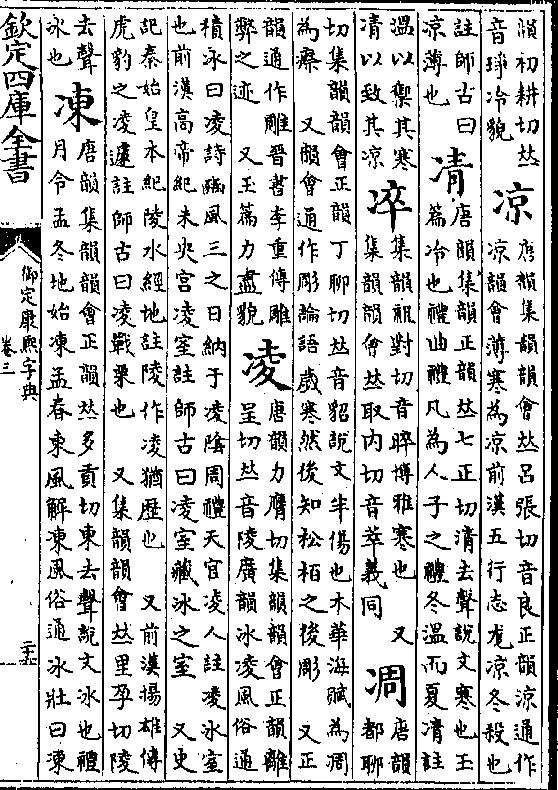 韻初耕切𠀤
音琤冷貌
凉
唐韻集韻韻會𠀤吕張切音良正韻凉通作
凉韻會薄寒為凉前漢五行志尨凉冬殺也
註師古曰
凉薄也
凊
唐韻集韻正韻𠀤七正切清去聲說文寒也玉
篇冷也禮曲禮凡為人子之禮冬溫而夏凊註
溫以禦其寒
凊以致其凉
集韻祖對切音晬博雅寒也 又
集韻韻會𠀤取内切音萃義同
凋
唐韻
都聊
切集韻韻會正韻丁聊切𠀤音貂說文半傷也木華海賦為凋
為瘵 又韻會通作彫論語歲寒然後知松栢之後彫 又正
韻通作雕晉書李重傳雕
弊之迹 又玉篇力盡貌
凌
唐韻力膺切集韻韻會正韻離
呈切𠀤音陵廣韻冰凌風俗通
積冰曰凌詩豳風三之日納于凌隂周禮天官凌人註凌冰室
也前漢高帝紀未央宫凌室註師古曰凌室藏冰之室 又史
記秦始皇本紀陵水經地註陵作凌猶歷也 又前漢揚雄傳
虎豹之凌遽註師古曰凌戰栗也 又集韻韻會𠀤里孕切陵
去聲
冰也
凍
唐韻集韻韻會正韻𠀤多貢切東去聲說文冰也禮
月令孟冬地始凍孟春東風解凍風俗通冰壯曰凍
欽定四庫全書
御定康熙字典
卷三
二十五